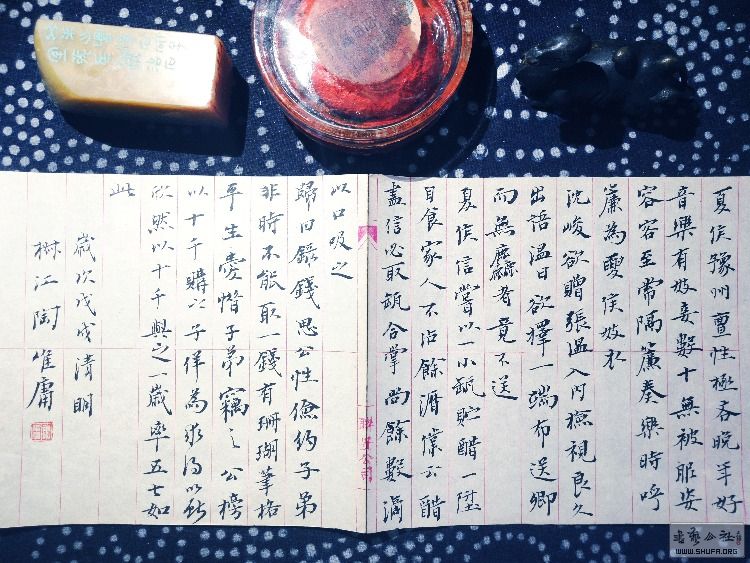 夏侯豫州亶性極吝晚年好
音樂有妓妾數十無被服姿
容客至常隔簾奏樂時呼
簾為夏侯妓衣
沈峻欲贈張溫入內撫視良久
出語溫曰欲擇一端布送卿
而無麤者竟不送
夏侯信嘗以一小瓶貯醋一陞
自食家人不沾餘瀝僕云醋
盡信必取瓶合掌尚餘數滴
以口吸之
歸田錄錢思公性儉約子弟
非時不能取一錢有珊瑚筆格
平生愛惜子弟竊之公榜
以十千購以子佯為求得以獻
欣然以十千與之一歲率五七如
此
歲次戊戌清明
樹江陶唯庸
聯星公司
WWW.SHUFA.ORG